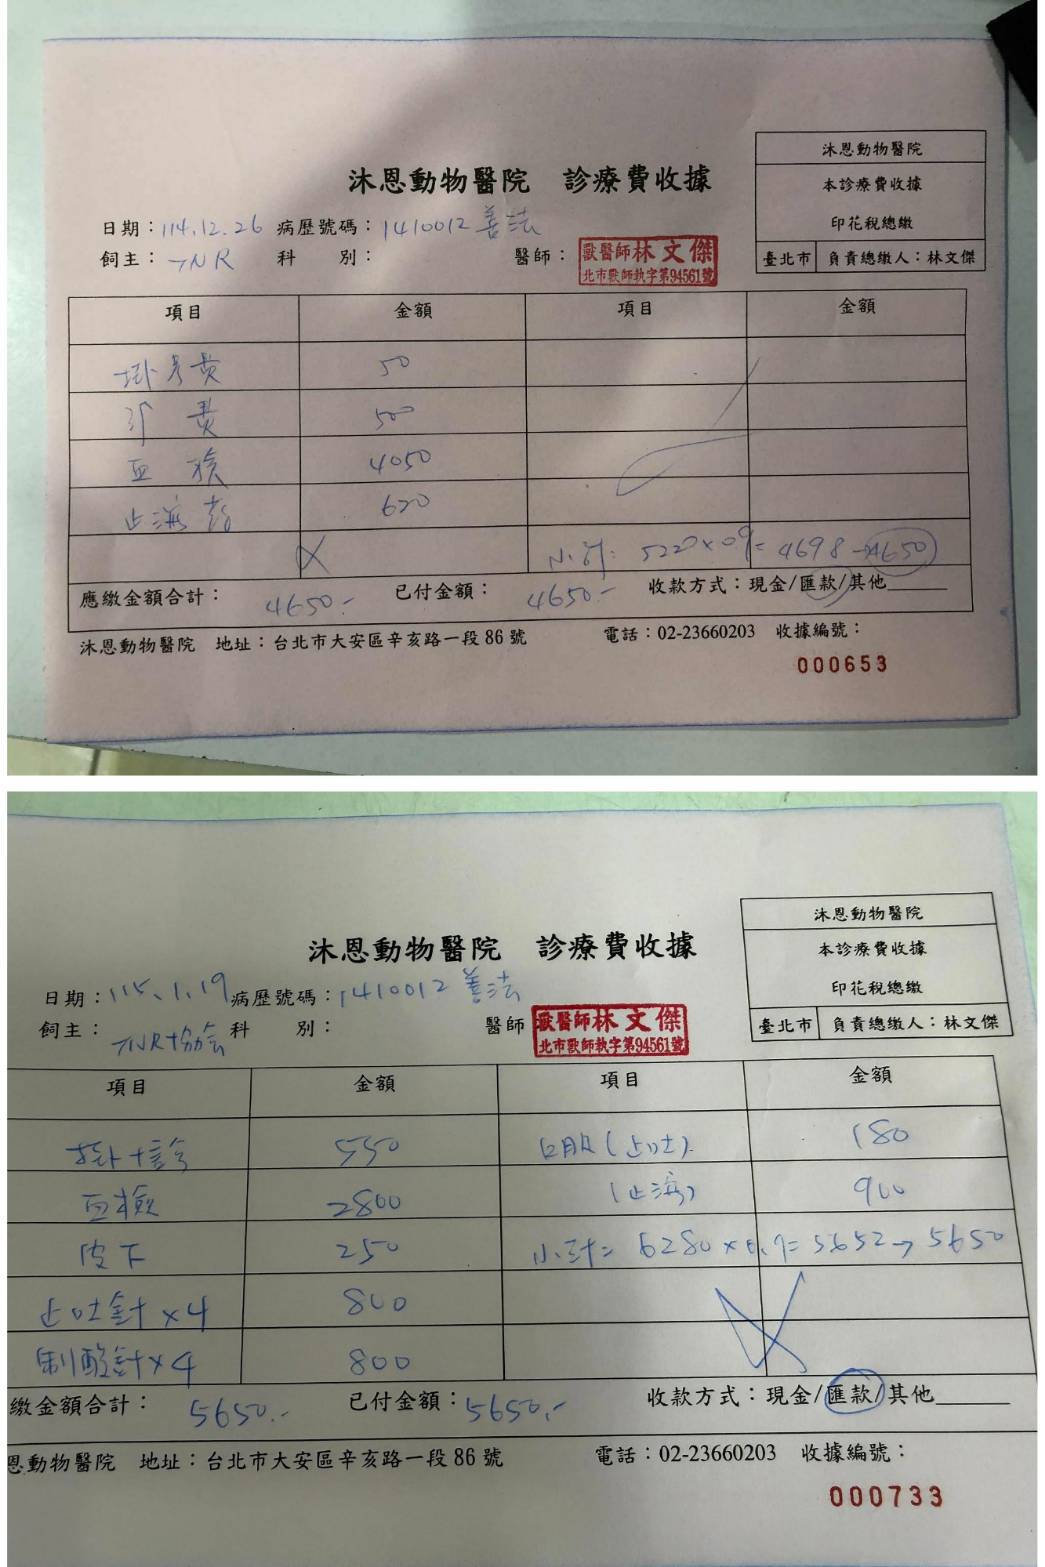 沐恩動物醫院
本診療費收據
印花稅總繳
臺北市 負責總繳人：林文傑
沐恩動物醫院 診療費收據
日期：114.12.26 病歷號碼：1410012 善法
飼主：TNR 科 別： 醫師：
獸醫師林文傑
北市獸師執字第94561號
項目 金額 項目 金額
掛号費 50
診費 500
血檢 4050
止瀉 620
小計: 5220×09= 4698→4650
應繳金額合計：4650.- 已付金額：4650.- 收款方式：現金/匯款/其他
沐恩動物醫院 地址：台北市大安區辛亥路一段86號 電話：02-23660203 收據編號：
000653
沐恩動物醫院
本診療費收據
印花稅總繳
臺北市 負責總繳人：林文傑
沐恩動物醫院 診療費收據
日期：115、1.19 病歷號碼：1410012 善法
飼主：TNR協会 科 別： 醫師
獸醫師林文傑
北市獸師執字第94561號
項目 金額 項目 金額
掛+診 550 口服(止吐) 180
血檢 2800 (止瀉) 900
皮下 250 小計= 6280×0.9=5652→5650
止吐針×4 800
制酸針×4 800
繳金額合計：5650.- 已付金額：5650.- 收款方式：現金/匯款/其他
恩動物醫院 地址：台北市大安區辛亥路一段86號 電話：02-23660203 收據編號：
000733